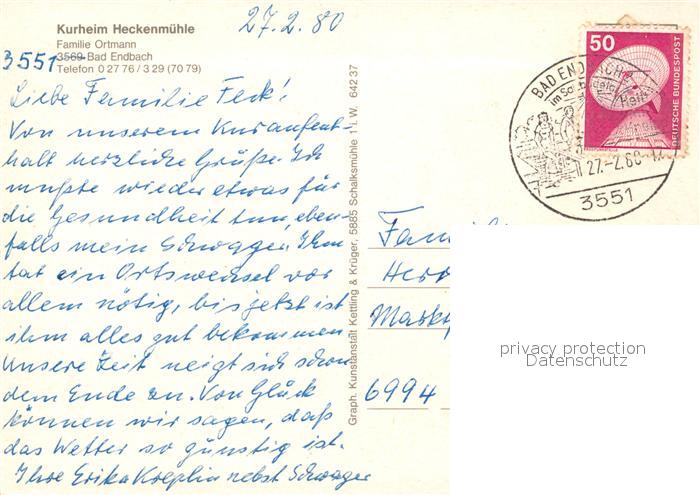 Kurheim Heckenmühle
27.2.80
Familie Ortmann
3551 3569 Bad Endbach
Telefon 0 27 76 / 3 29 (70 79)
Liebe Familie Feck!
Von unserem Kuraufent-
halt herzliche Grüße. Ich
mußte wieder etwas für
die Gesundheit tun, eben-
falls mein Schwager. Ihm
tat ein Ortswechsel vor
allem nötig, bis jetzt ist
ihm alles gut bekommen.
Unsere Zeit neigt sich schon
dem Ende zu. Von Glück
können wir sagen, daß
das Wetter so günstig ist.
Ihre Erika Kreplin nebst Schwager
Graph. Kunstanstalt Kettling & Krüger, 5885 Schalksmühle 1 i. W. 642 37
50
DEUTSCHE BUNDESPOST
BAD ENDBACH
27.-2.80
3551
Fam
Herr
Markt
6994
privacy protection
Datenschutz